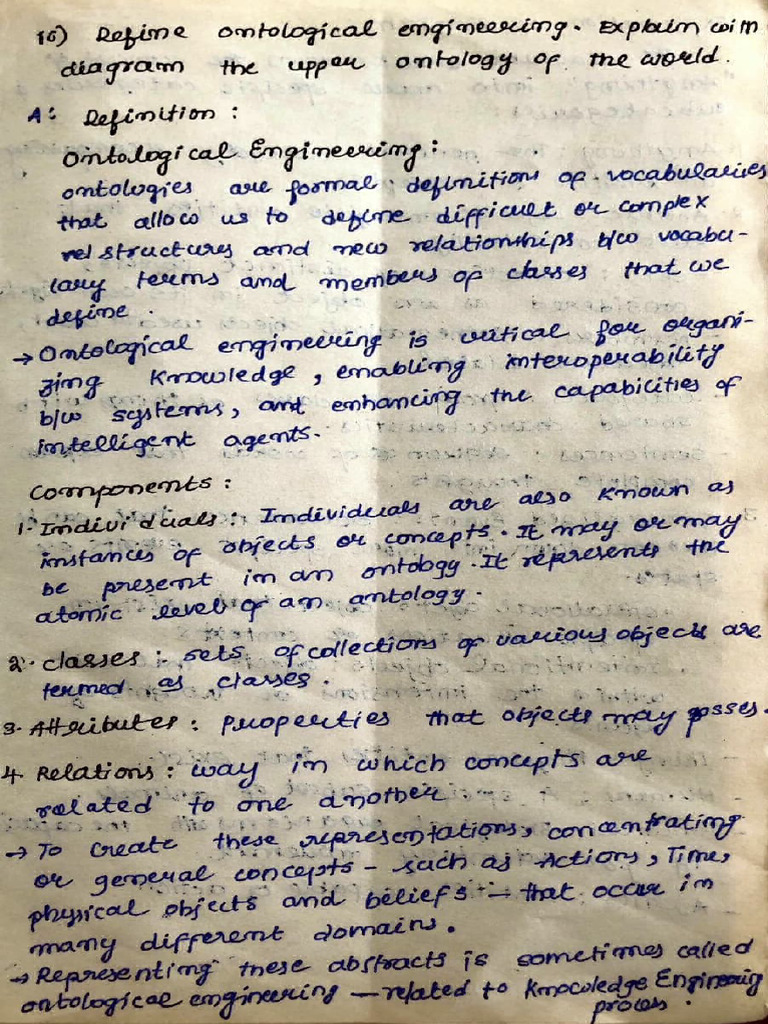 16) Define ontological engineering. Explain with
diagram the upper ontology of the world.
A: Definition :
Ontological Engineering :
ontologies are formal definitions of vocabularies
that allow us to define difficult or complex
structures and new relationships b/w vocabu-
lary terms and members of classes that we
define.
→ Ontological engineering is critical for organi-
zing knowledge, enabling interoperability
b/w systems, and enhancing the capabilities of
intelligent agents.
components :
1. Individuals : Individuals are also known as
instances of objects or concepts. It may or may
be present in an ontology. It represents the
atomic level of an antology.
2. classes : sets of collections of various objects are
termed as classes.
3. Attributes : properties that objects may posses.
4. Relations : way in which concepts are
related to one another
→ To create these representations, concentrating
or general concepts - such as Actions, Time,
physical objects and beliefs - that occur in
many different domains.
→ Representing these abstracts is sometimes called
ontological engineering — related to Knowledge Engineering
process.